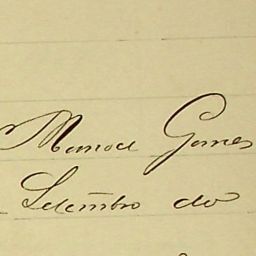 Manoel Gomes
Setembro do